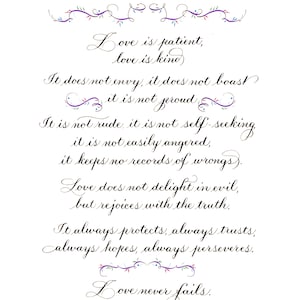 Love is patient,
love is kind
It does not envy, it does not boast
it is not proud
It is not rude it is not self-seeking
it is not easily angered,
it keeps no records of wrongs.
Love does not delight in evil,
but rejoices with the truth.
It always protects, always trusts,
always hopes, always perseveres.
Love never fails.